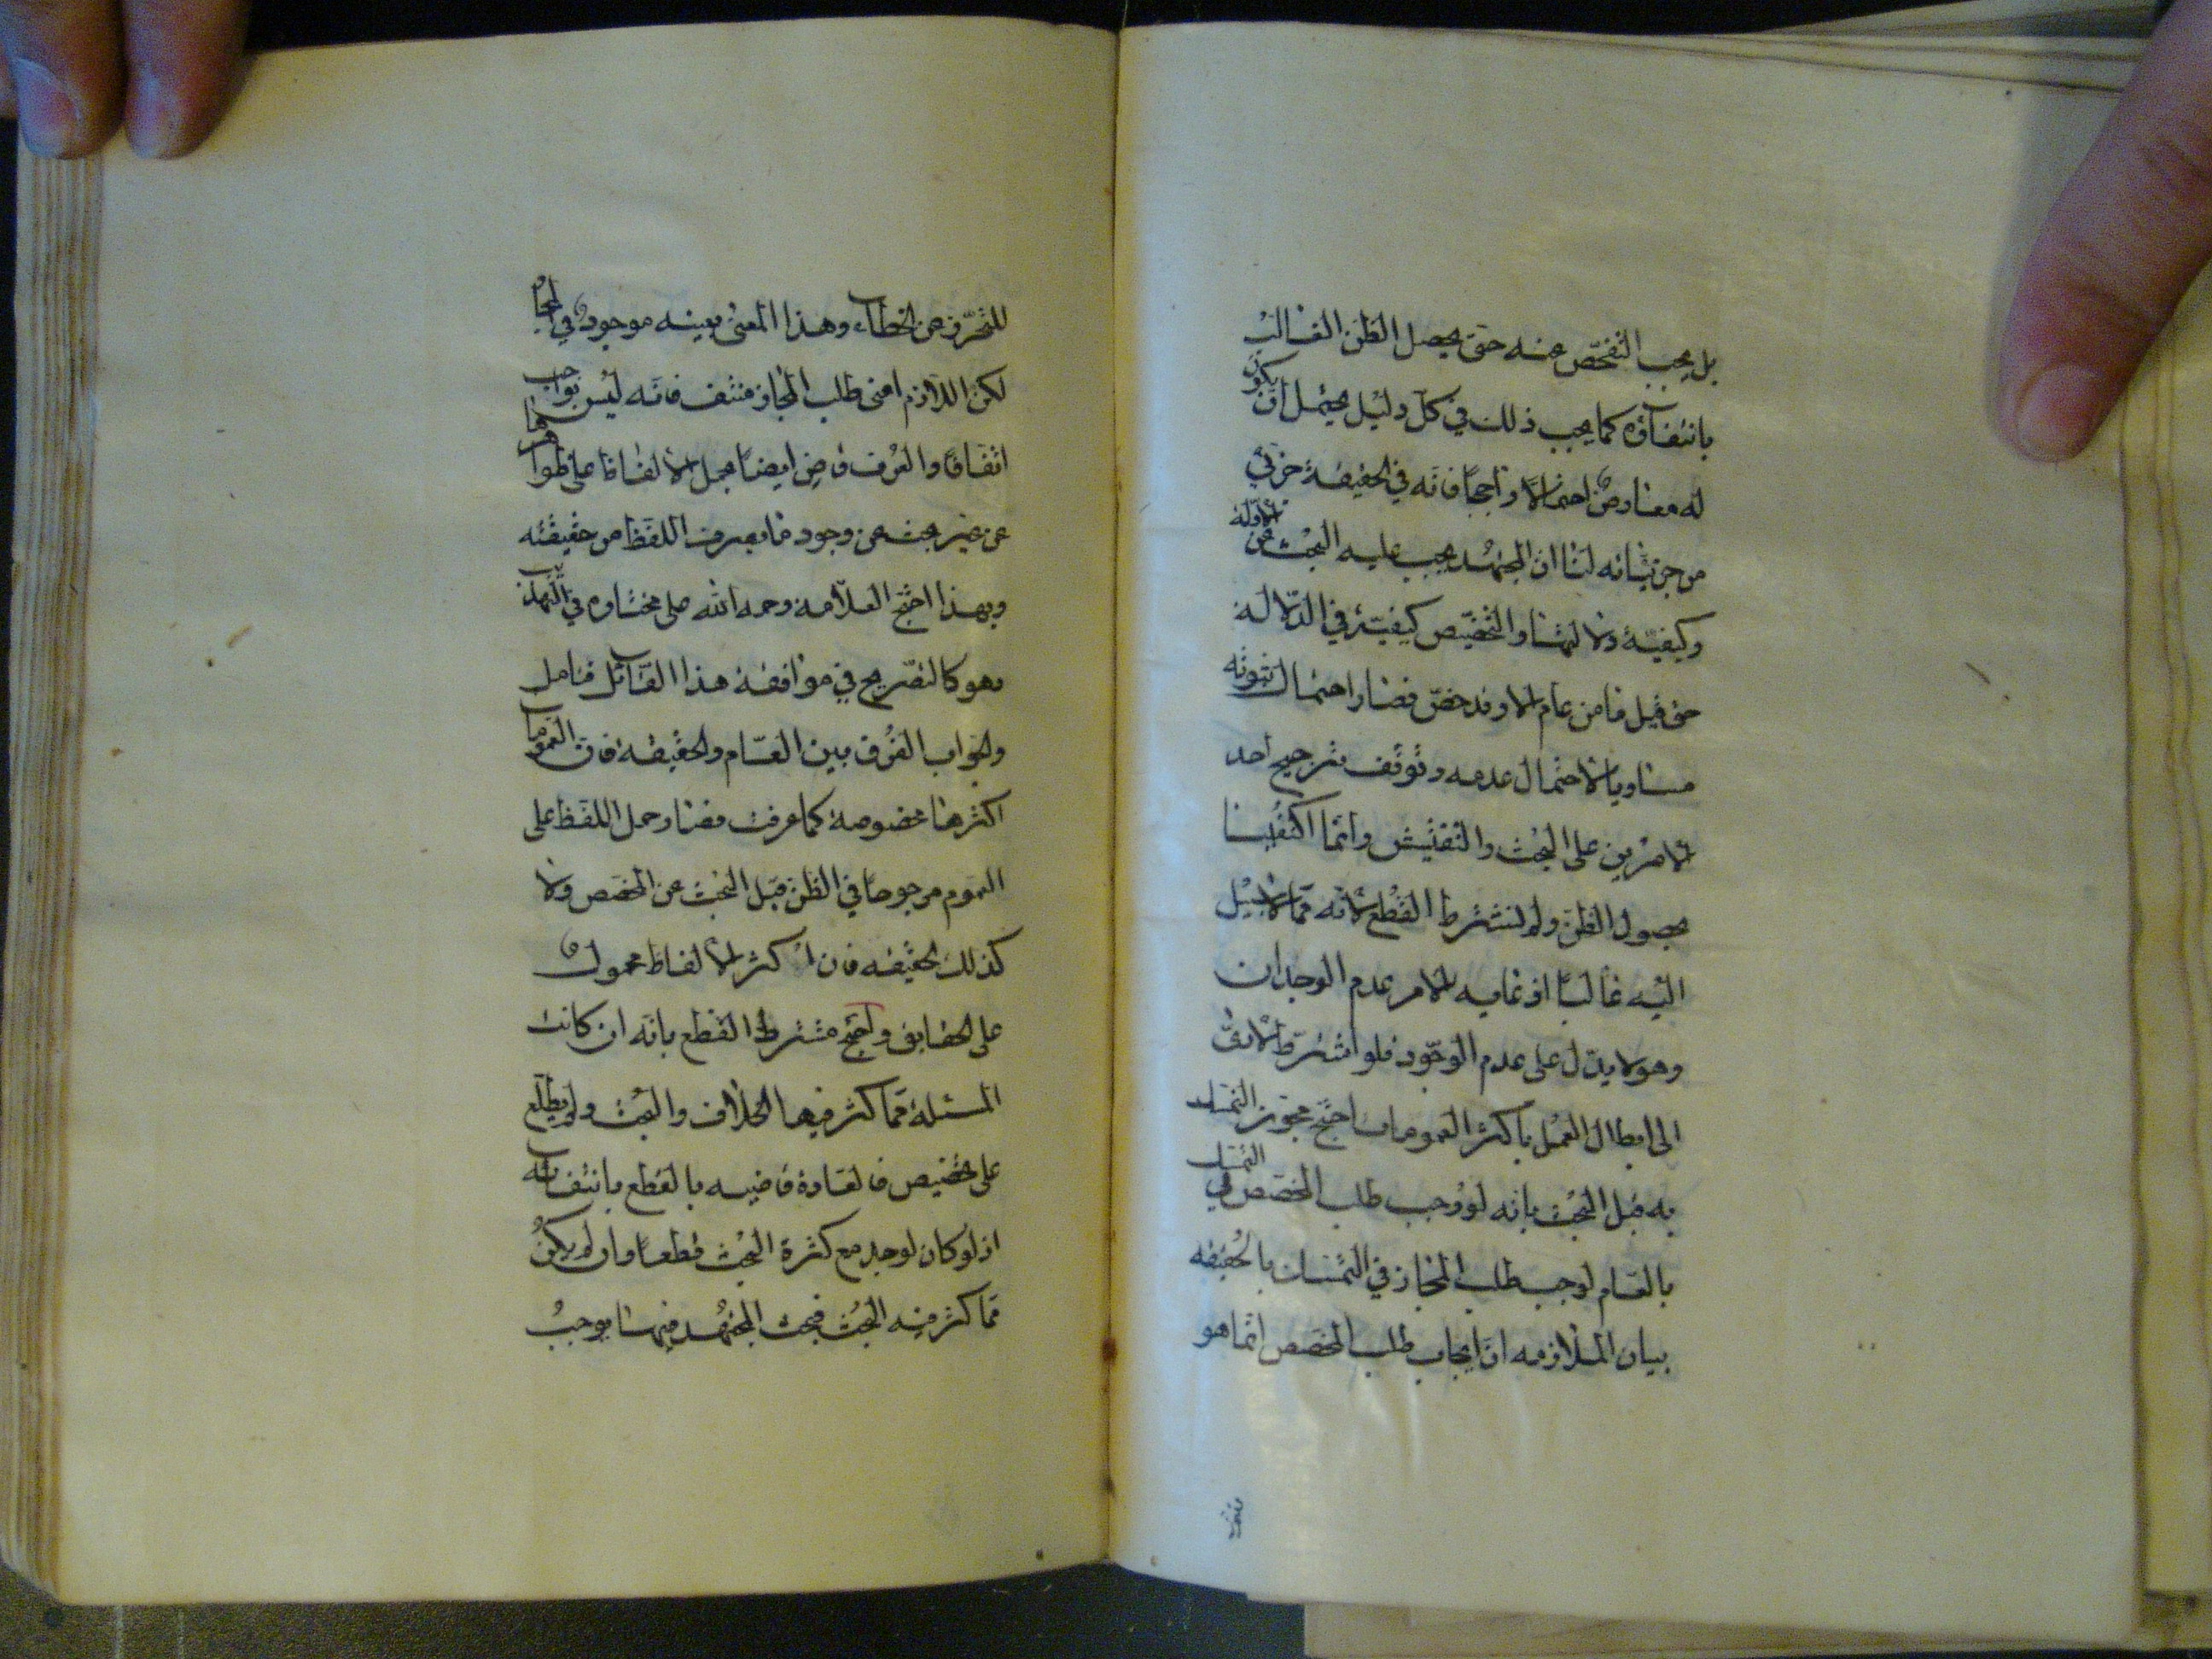 بل يجب التفحّص عنه حتى يحصل الظنّ الغالب
بانتفائه كما يجب ذلك في كلّ دليل يحتمل ان يكون
له معارض احتمالا راجحا فانّه في الحقيقة جزئي
من جزئيّاته لنا انّ المجتهد يجب عليه البحث عن الادلّة
وكيفيّة دلالتها والتخصيص كيفيّة في الدّلالة
حتى قيل ما من عام الا وقد خصّ فصار احتمال ثبوته
مساويا لاحتمال عدمه وتوقّف ترجيح احد
الامرين على البحث والتفتيش وانّما اكتفينا
بحصول الظنّ ولم نشترط القطع لانّه ممّا لا سبيل
اليه غالبا اذ غاية الامر عدم الوجدان
وهو لا يدلّ على عدم الوجود فلو اشترط لادّى
الى ابطال العمل باكثر العمومات احتجّ مجوّز التمسك
به قبل البحث بانه لو وجب طلب المخصّص في التمسك
بالعام لوجب طلب المجاز في التمسك بالحقيقة
بيان الملازمة انّ ايجاب طلب المخصّص انّما هو
للتحرّز عن الخطاء وهذا المعنى بعينه موجود في المجاز
لكن اللازم اعنى طلب المجاز منتف فانّه ليس بواجب
اتفاقا والعرف قاض ايضا بحمل الالفاظ على ظواهرها
من غير بحث عن وجود ما يصرف اللفظ من حقيقته
وبهذا احتجّ العلّامة رحمه الله على مختاره في التهذيب
وهو كالتصريح في موافقة هذا القائل فتامل
والجواب الفرق بين العام والحقيقة فان العمومات
اكثرها مخصوصة كما عرفت فصار حمل اللفظ على
العموم مرجوحا في الظنّ قبل البحث عن المخصّص ولا
كذلك الحقيقة فان اكثر الالفاظ محمول
على الحقايق واحتجّ مشترط القطع بانّه ان كانت
المسئلة ممّا كثر فيها الخلاف والبحث ولم يطّلع
على تخصيص فالعادة قاضية بالقطع بانتفائه
اذ لو كان لوجد مع كثرة البحث قطعا وان لم يكن
ممّا كثر فيه البحث فبحث المجتهد فيها يوجب